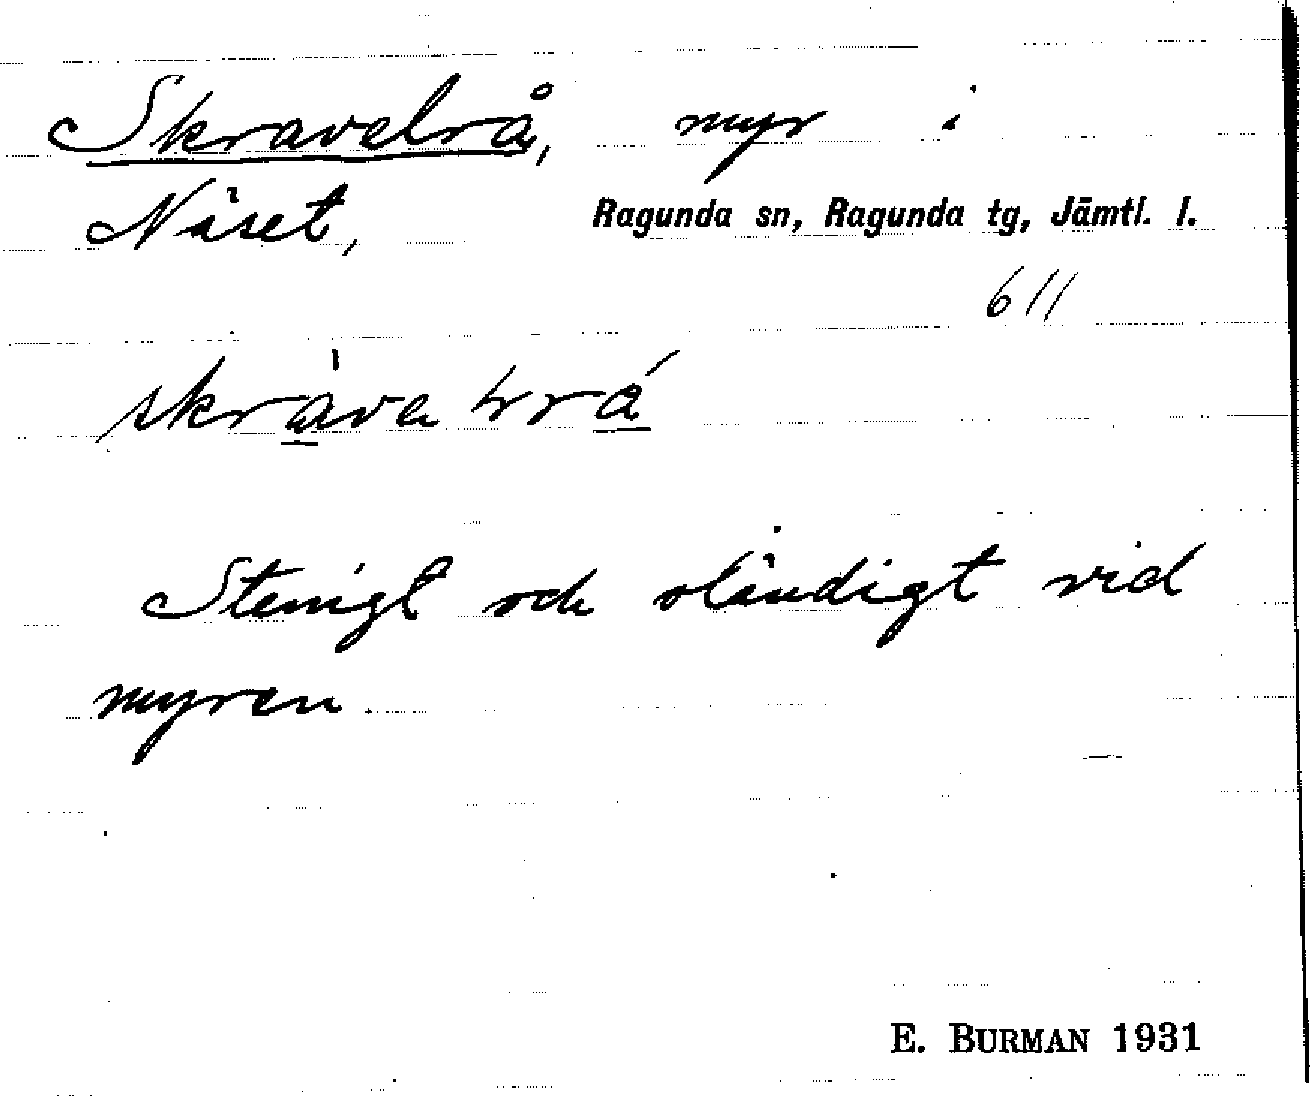 Skravelrå, myr i
Näset, Ragunda sn, Ragunda tg, Jämtl. l.
611
Stenigt och oländigt vid
myren.
E. BURMAN 1931